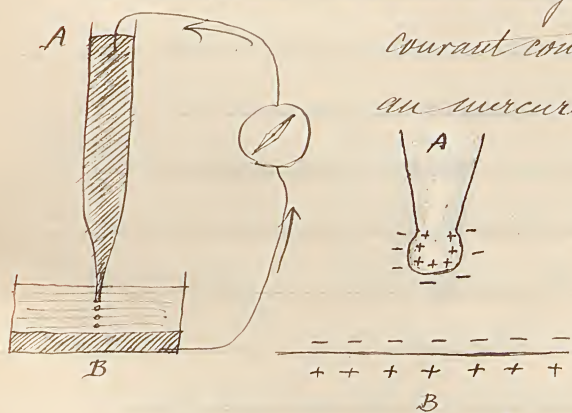 A
courant cou
au mercur
A
B
B